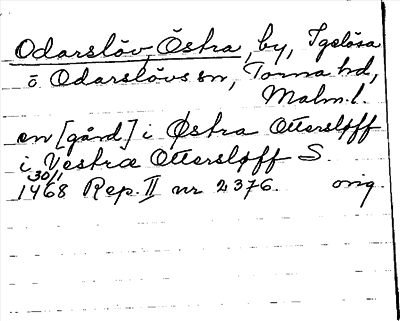 Odarslöv, Östra, by, Igelösa
o. Odarslövs sn, Torna hd,
Malm. l.
en [gård] i Østra Ottersløff
i Vestræ Otterslöff S.
30/1
1468 Rep. II nr 2376. orig.